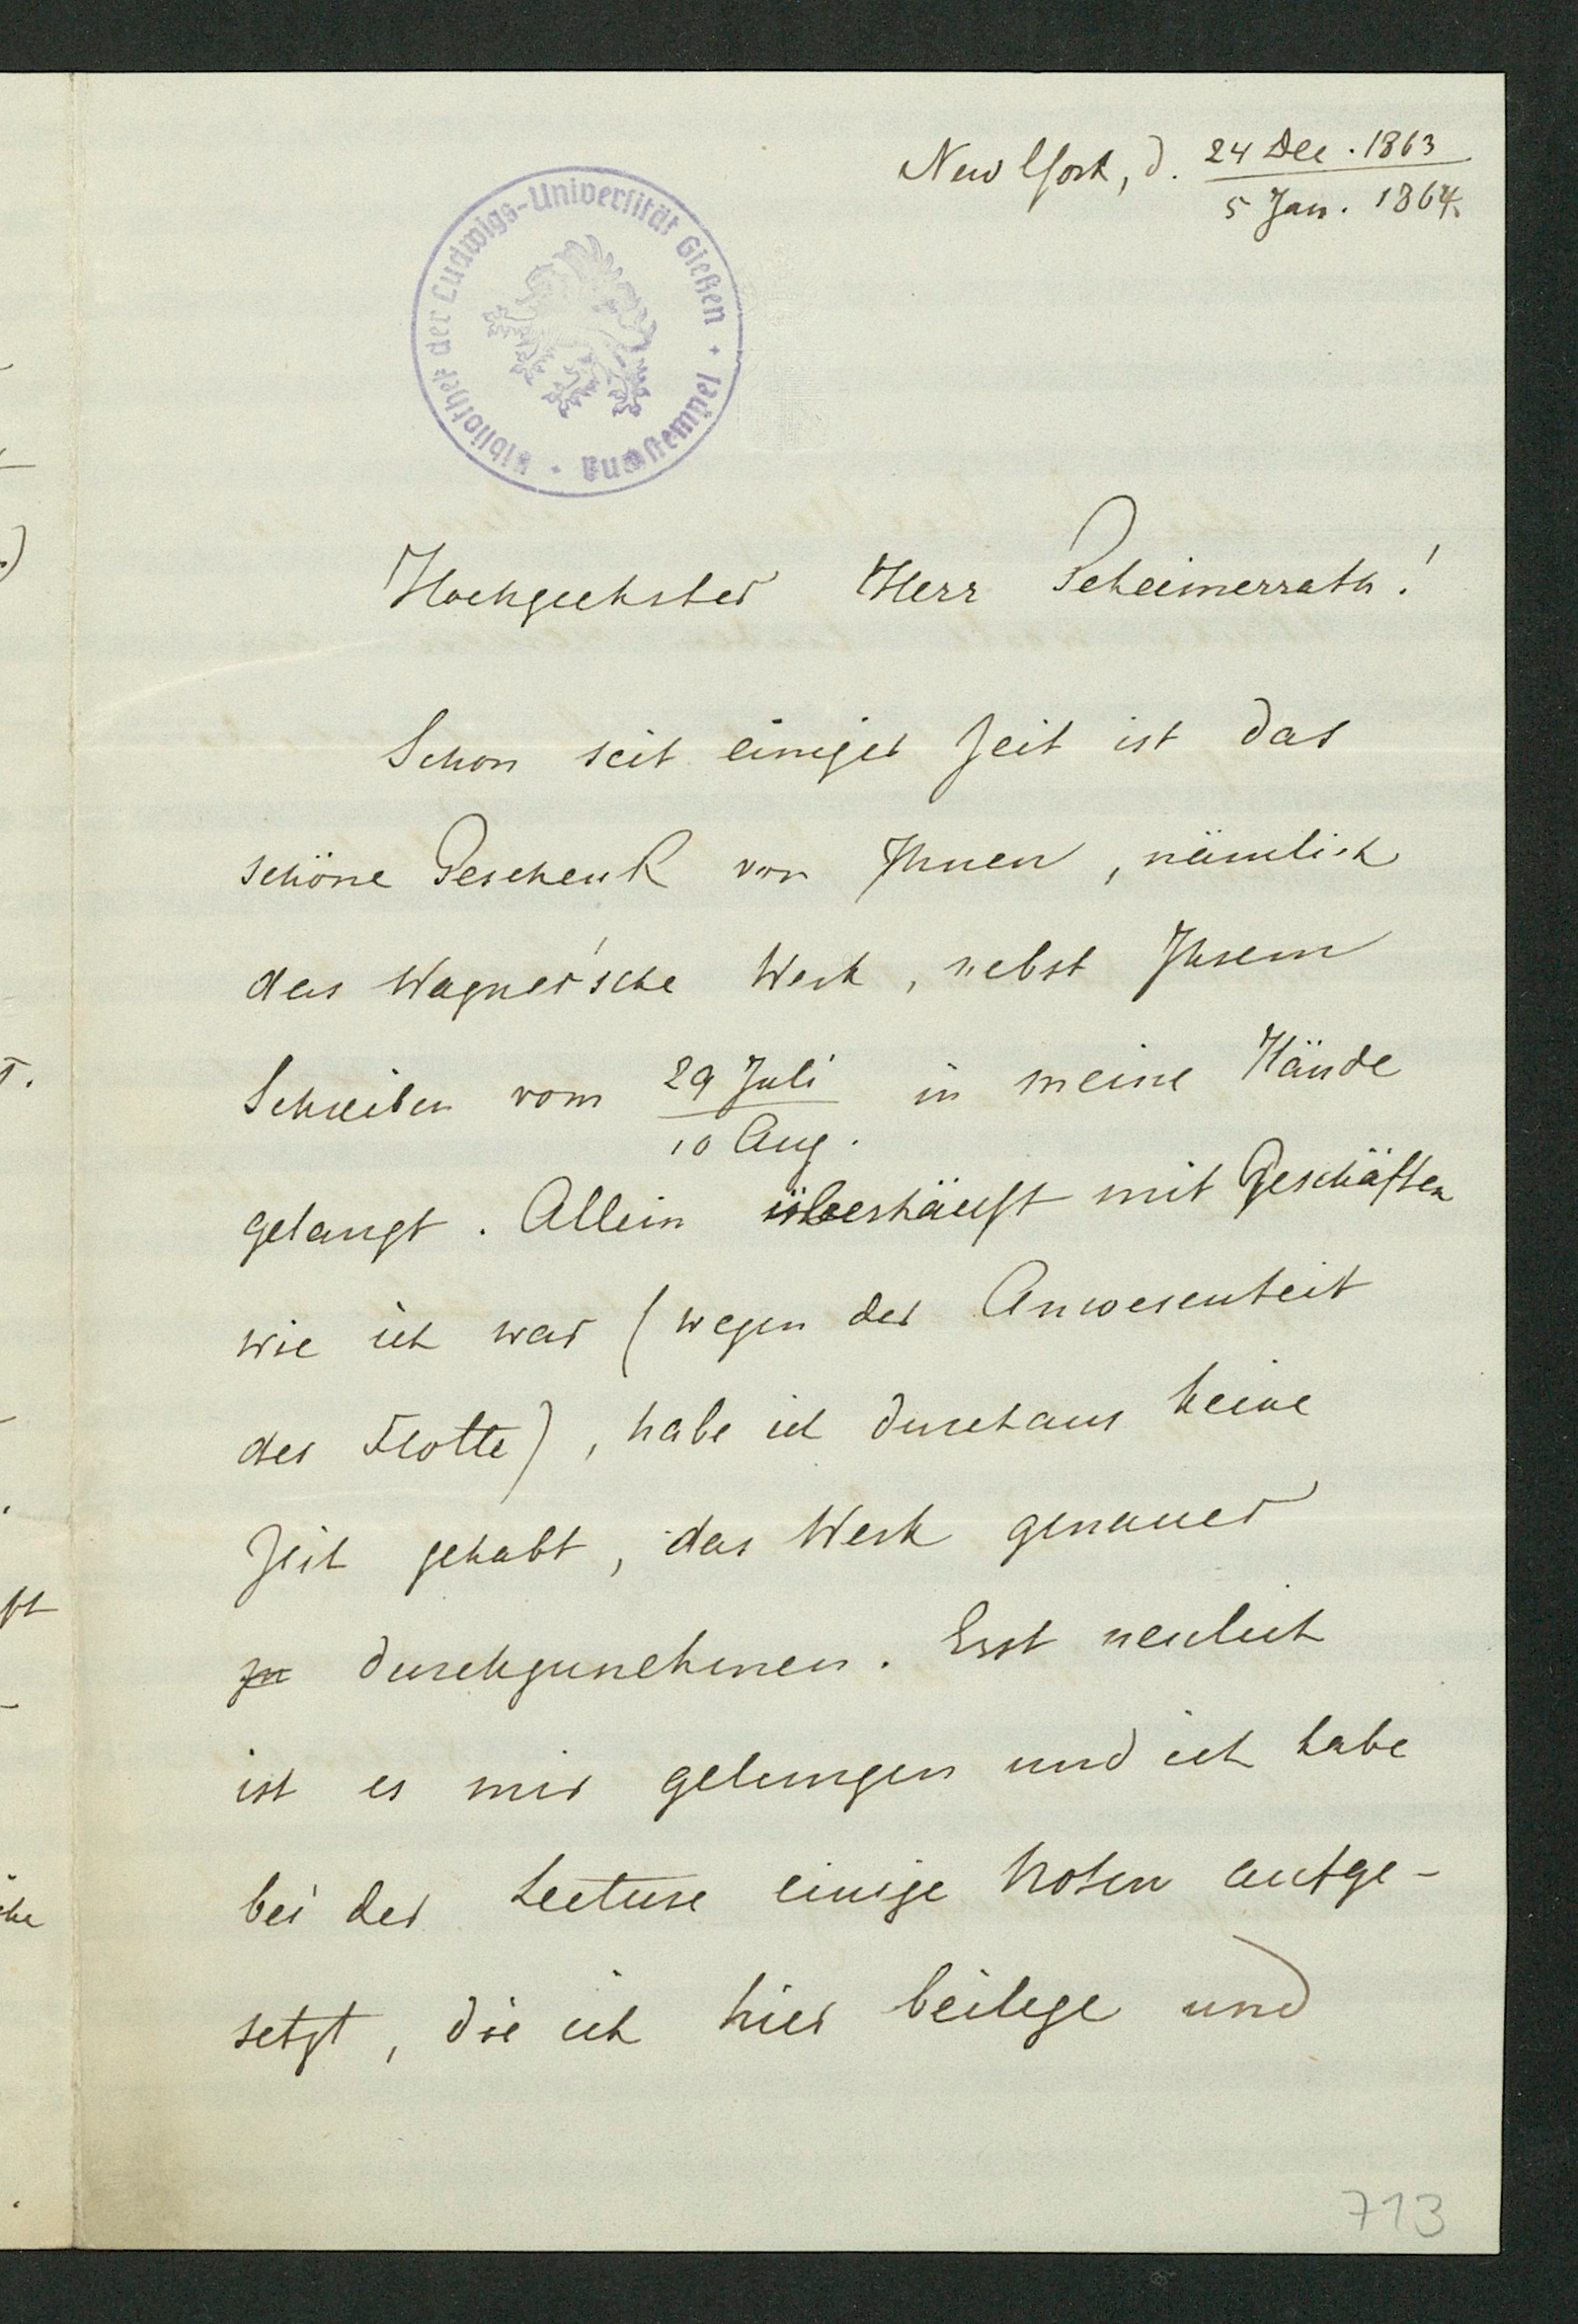 New York, d. 24 Dec. 1863
5 Jan. 1864.
Bibliothek der Ludwigs-Universität Gießen
Hochgeehrter Herr Geheimerrath!
Schon seit einiger Zeit ist das
schöne Geschenk von Ihnen, nämlich
das Wagner'sche Werk, nebst Ihrem
Schreiben vom 29 Juli in meine Hände
10 Aug.
gelangt. Allein überhäuft mit Geschäften
wie ich war (wegen der Anwesenheit
der Flotte), habe ich durchaus keine
Zeit gehabt, das Werk genauer
zu durchzunehmen. Erst neulich
ist es mir gelungen und ich habe
bei der Lecture einige Noten aufge-
setzt, die ich hier beilege und
713